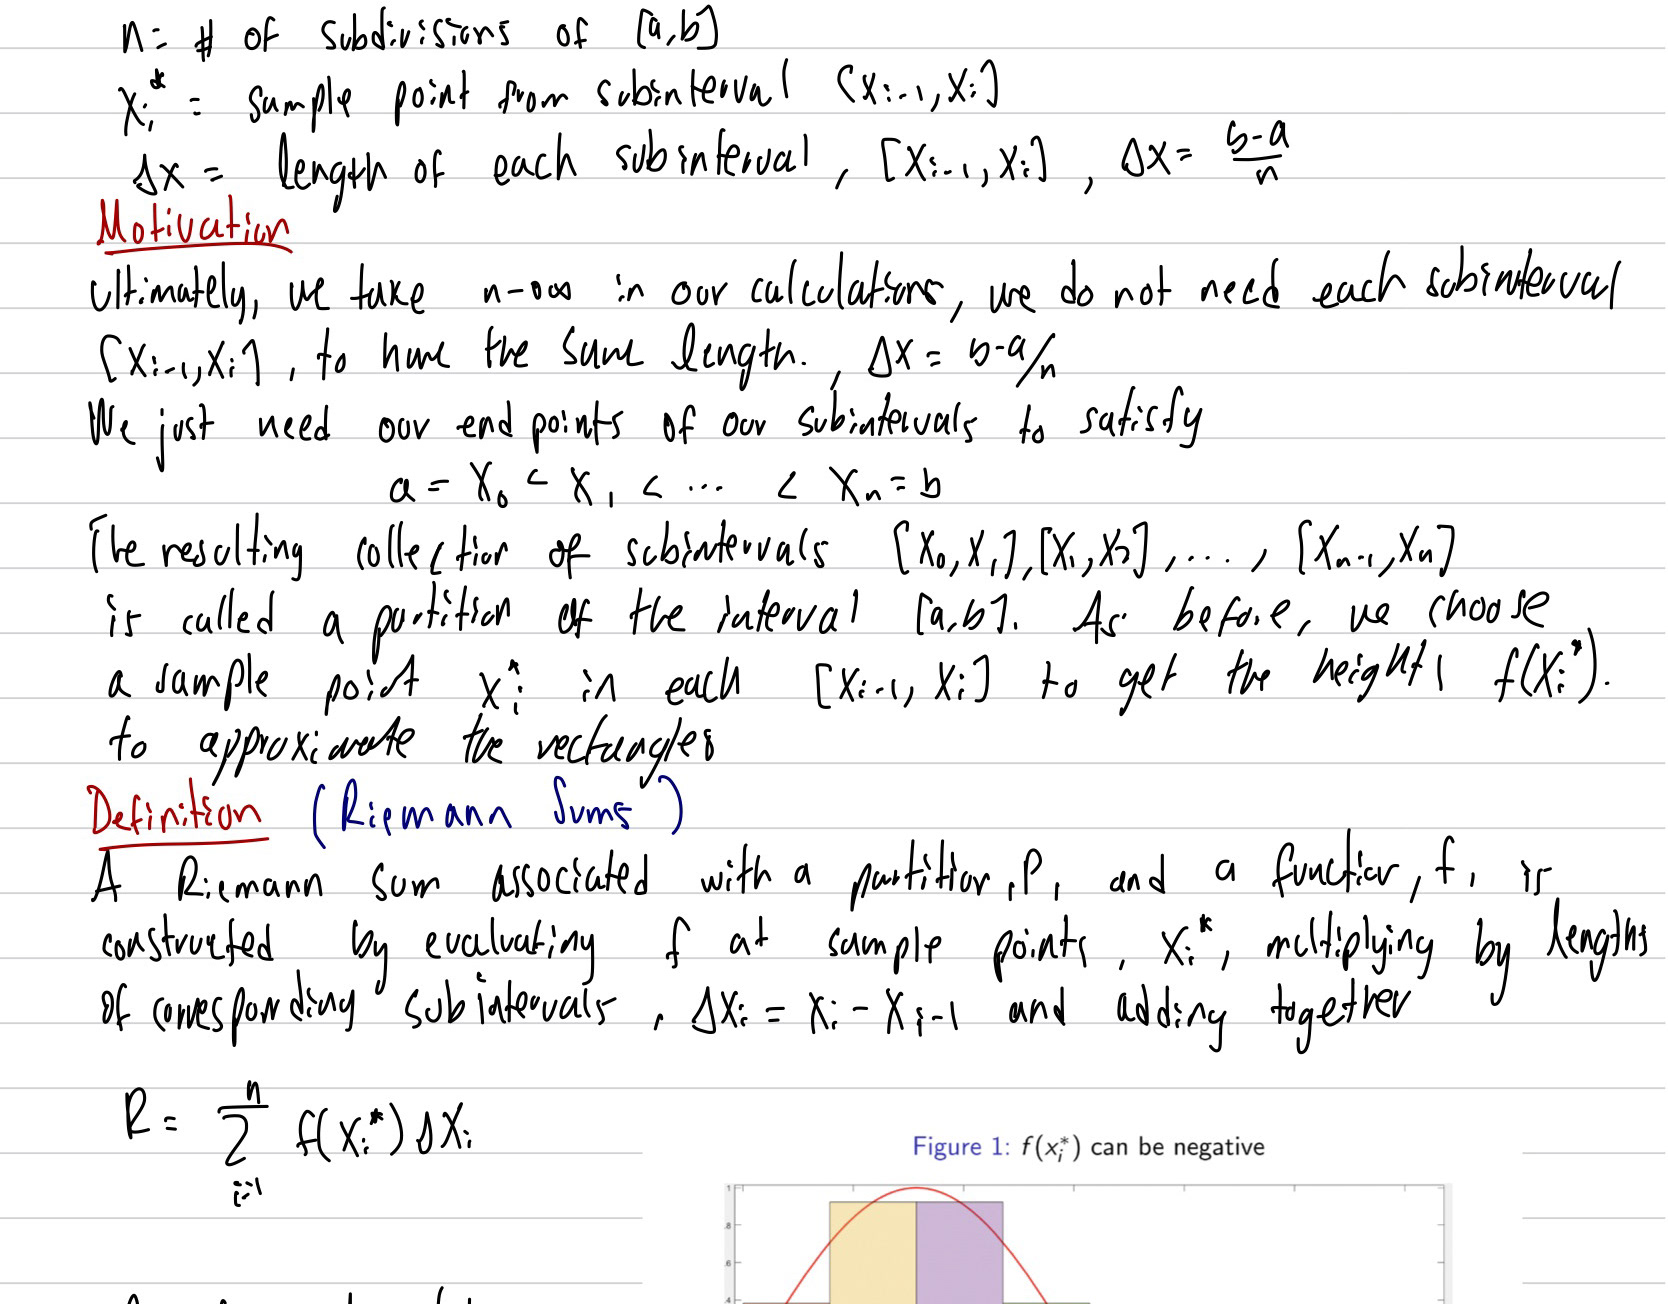 n = # of subdivisions of [a,b]
xᵢ* = sample point from subinterval [xᵢ₋₁, xᵢ]
Δx = length of each subinterval, [xᵢ₋₁, xᵢ], Δx = b-a/n
Motivation
Ultimately, we take n→∞ in our calculations, we do not need each subinterval
[xᵢ₋₁, xᵢ], to have the same length., Δx = b-a/n
We just need our end points of our subintervals to satisfy
a = x₀ < x₁ < ... < xₙ = b
The resulting collection of subintervals [x₀, x₁], [x₁, x₂], ..., [xₙ₋₁, xₙ]
is called a partition of the interval [a,b]. As before, we choose
a sample point xᵢ* in each [xᵢ₋₁, xᵢ] to get the heights f(xᵢ*).
to approximate the rectangles
Definition (Riemann Sums)
A Riemann sum associated with a partition, P, and a function, f, is
constructed by evaluating f at sample points, xᵢ*, multiplying by lengths
of corresponding subintervals, Δxᵢ = xᵢ - xᵢ₋₁ and adding together
R = Σ n i=1 f(xᵢ*) Δxᵢ
Figure 1: f(xᵢ*) can be negative
1
.8
.6
.4